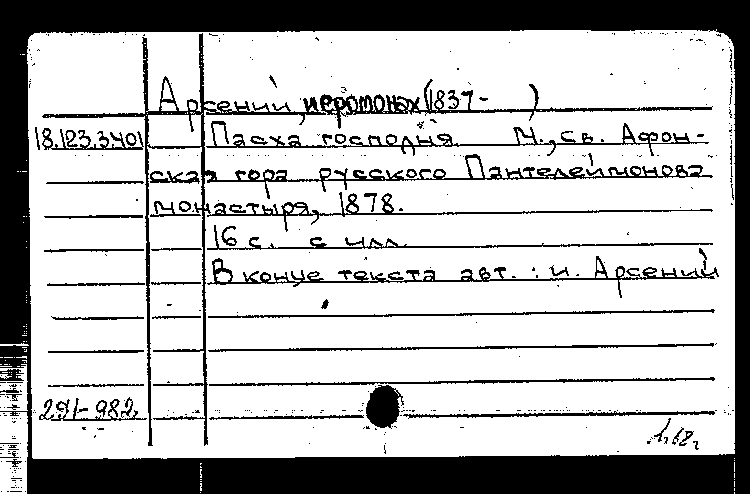 Арсений, иеромонах (1837- )
18.123.3401 Пасха господня М., Св. Афон-
ская гора русского Пантелеймонова
монастыря, 1878.
16 с. с илл.
В конце текста авт.: и. Арсений
291-982